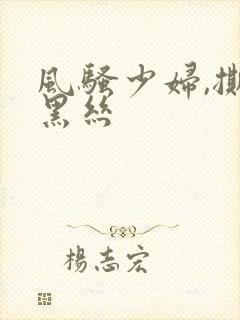 風騷少婦,撕
黑絲
楊志宏